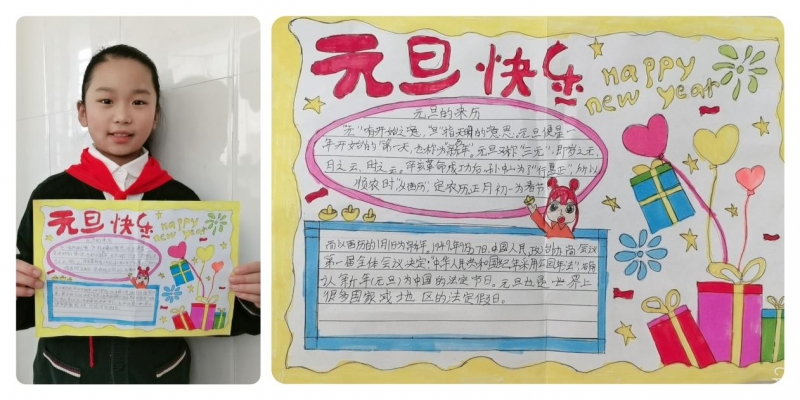 元旦快乐
Happy
new year
元旦的来历
"元"有开始之意，"旦"指天明的意思。元旦便是一
年开始的第一天，也称为"新年"。元旦又称"三元"，即岁之元、
月之元、时之元。辛亥革命成功后，孙中山为了"行夏正"，所以
顺农时"从西历"，定农历正月初一为春节
而以西历的1月1日为新年。1949年9月27日，中国人民政治协商会议
第一届全体会议决定："中华人民共和国纪年采用公元年法"，确
认新年(元旦)为中国的法定节日。元旦也是世界上
很多国家或地区的法定假日。